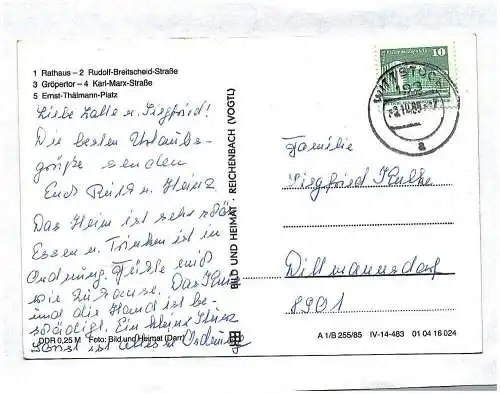 1 Rathaus – 2 Rudolf-Breitscheid-Straße
3 Gröpertor – 4 Karl-Marx-Straße
5 Ernst-Thälmann-Platz
Liebe u. Siegfried!
Die besten Urlaubs-
grüße senden
Euch Ruth u. Heinz
Das Heim ist sehr
Essen u. Trinken ist in
Ordnung. Fühle mich
wie zu Hause. Das
und die Hand ist be-
schädigt. Ein kleine
Sonst ist alles in Ordnung
DDR 0,25 M Foto: Bild und Heimat (Darr)
BILD UND HEIMAT · REICHENBACH (VOGTL)
10
WITTSTOCK
193
a
Familie
Siegfried
Dittmannsdorf
8901
A 1/B 255/85 IV-14-483 01 04 16 024